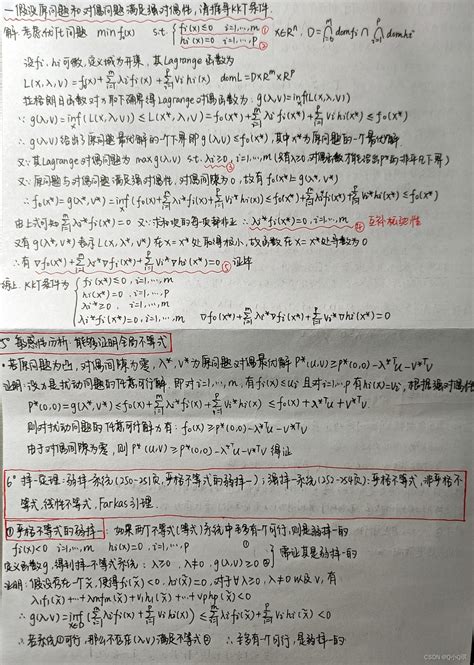 一. 假设原问题和对偶问题满足强对偶性, 请推导KKT条件.
解: 考虑优化问题 min f₀(x) s.t. { fi(x)≤0 i=1,...,m ① x∈Rⁿ, D=⋂ᵢ₌₀ᵐ dom fi ∩ ⋂ᵢ₌₁ᵖ dom hi
hi(x)=0 i=1,...,p ②
设fi, hi可微, 定义域为开集, 其Lagrange函数为
L(x,λ,ν) = f₀(x)+∑ᵢ₌₁ᵐ λi fi(x)+∑ᵢ₌₁ᵖ νi hi(x) dom L=D×Rᵐ×Rᵖ
拉格朗日函数对x取下确界得Lagrange对偶函数为: g(λ,ν)=inf(L(x,λ,ν))
∵ g(λ,ν)=inf(L(x,λ,ν))≤L(x*,λ,ν)=f₀(x*)+∑ᵢ₌₁ᵐ λi fi(x*)+∑ᵢ₌₁ᵖ νi hi(x*)≤f₀(x*)
∴ g(λ,ν)给出了原问题最优解的一个下界即g(λ,ν)≤f₀(x*), 其中x*为原问题的一个最优解
又∵其Lagrange对偶问题为 max g(λ,ν) s.t. λi≥0, i=1,...,m ③ (只有λ≥0对偶函数才能给出p*的非平凡下界)
又∵原问题与对偶问题满足强对偶性, 对偶间隙为0, 故有f₀(x*)=g(λ*,ν*)
∴ f₀(x*)=g(λ*,ν*)=inf(f₀(x)+∑ᵢ₌₁ᵐ λi*fi(x)+∑ᵢ₌₁ᵖ νi*hi(x))≤f₀(x*)+∑ᵢ₌₁ᵐ λi*fi(x*)+∑ᵢ₌₁ᵖ νi*hi(x*)≤f₀(x*)
由上式可知∑ᵢ₌₁ᵐ λi*fi(x*)=0 又∵求和项的每项都非正 ∴ λi*fi(x*)=0, i=1,...,m ④ 互补松弛性
又有g(λ*,ν*)表示L(x,λ*,ν*)在x=x*处取得极小, 故函数在x=x*处导数为0
∴有 ∇f₀(x*)+∑ᵢ₌₁ᵐ λi*∇fi(x*)+∑ᵢ₌₁ᵖ νi*∇hi(x*)=0 ⑤ 证毕
综上, KKT条件为 { fi(x*)≤0, i=1,...,m
hi(x*)=0, i=1,...,p
λi*≥0, i=1,...,m
λi*fi(x*)=0, i=1,...,m ∇f₀(x*)+∑ᵢ₌₁ᵐ λi*∇fi(x*)+∑ᵢ₌₁ᵖ νi*∇hi(x*)=0
5° 敏感性分析: 能够证明全局不等式
·若原问题为凸, 对偶间隙为零, λ*,ν*为原问题对偶最优解 P*(u,v)≥P*(0,0)-λ*ᵀu-ν*ᵀv
证明: 设x为扰动问题的任意可行解, 即对i=1,...,m, 有fi(x)≤ui 且对i=1,...,p有hi(x)=vi, 根据强对偶性
P*(0,0)=g(λ*,ν*)≤f₀(x)+∑ᵢ₌₁ᵐ λi*fi(x)+∑ᵢ₌₁ᵖ νi*hi(x)≤f₀(x)+λ*ᵀu+ν*ᵀv
则对扰动问题的任意可行解x有: f₀(x)≥P*(0,0)-λ*ᵀu-ν*ᵀv
由于对偶间隙为零, 则P*(u,v)≥P*(0,0)-λ*ᵀu-ν*ᵀv 得证
6° 择一定理: 弱择一系统(250-251页, 严格不等式的弱择一); 强择一系统(252-254页): 严格不等式, 非严格不
等式, 线性不等式, Farkas引理.
①严格不等式的弱择一: 如果两个不等式(等式)系统中至多有一个可行, 则是弱择一的
fi(x)<0 i=1,...,m hi(x)=0, i=1,...,p ①
定义函数g, 得到择一不等式系统: λ≥0, λ≠0, g(λ,ν)≥0 ② } 需证其是弱择一的
证明: 假设存在一个x̃, 使得fi(x̃)<0, hi(x̃)=0, 对于∀λ≥0, λ≠0以及ν, 有
λ₁f₁(x̃)+...+λmfm(x̃)+ν₁h₁(x̃)+...+νphp(x̃)<0
∴ g(λ,ν)=inf(∑ᵢ₌₁ᵐ λi fi(x)+∑ᵢ₌₁ᵖ νi hi(x))≤∑ᵢ₌₁ᵐ λi fi(x̃)+∑ᵢ₌₁ᵖ νi hi(x̃)<0
∴若系统①可行, 那么不存在(λ,ν)满足不等式② ∴至多有一个可行, 是弱择一的